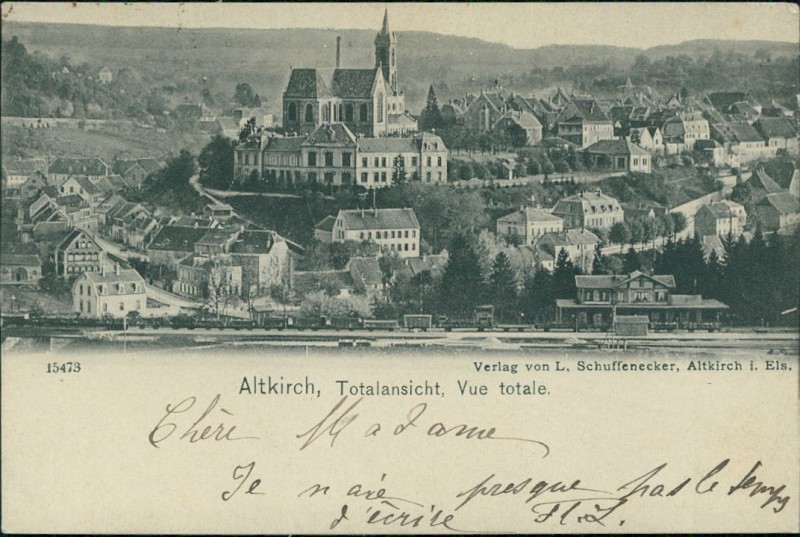 15473
Verlag von L. Schuffenecker, Altkirch i. Els.
Altkirch, Totalansicht, Vue totale.
Chère Madame
Je n'aie presque pas le temps
d'écrire H.L.